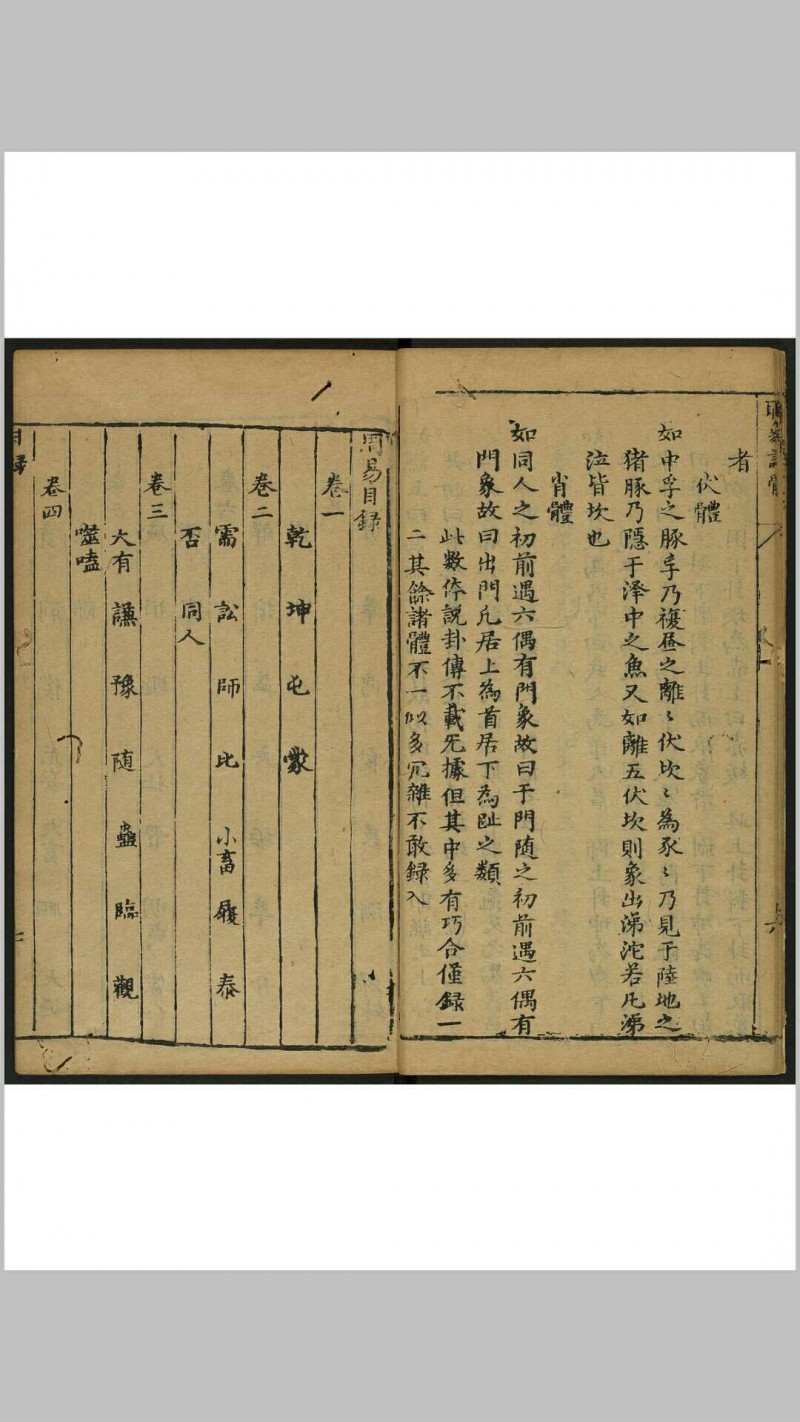 者
伏體
如中孚之豚孚乃複昼之離〻伏坎〻為豕〻乃見于陸地之
猪豚乃隱于泽中之魚又如離五伏坎則象出涕沱若凡涕
泣皆坎也
肖體
如同人之初前遇六偶有門象故曰于門随之初前遇六偶有
門象故曰出門凡居上為首居下為趾之類
此数体説卦傳不載旡據但其中多有巧合僅録一
二其餘諸體不一似多冗雜不敢録入
周易目録
卷一
乾 坤 屯 蒙
卷二
需 訟 師 比 小畜 履 泰
否 同人
卷三
大有 謙 豫 随 蠱 臨 觀
噬嗑
卷四
目録